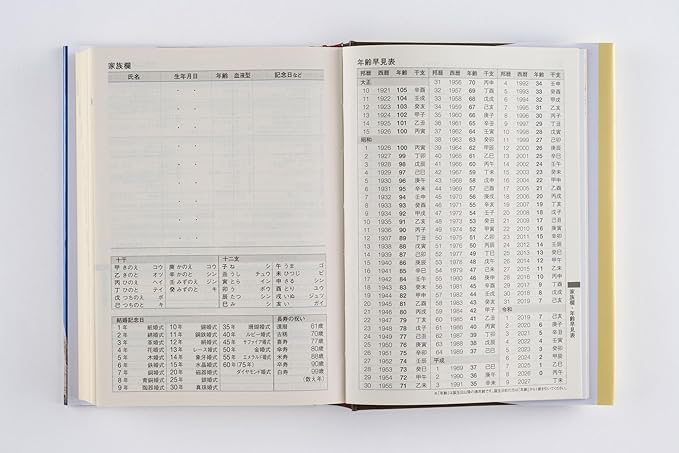 家族欄
氏名 生年月日 年齢 血液型 記念日など
十干 十二支
甲 きのえ コウ 庚 かのえ コウ 子 ね シ 午 うま ゴ
乙 きのと オツ 辛 かのと シン 丑 うし チュウ 未 ひつじ ビ
丙 ひのえ ヘイ 壬 みずのえ ジン 寅 とら イン 申 さる シン
丁 ひのと テイ 癸 みずのと キ 卯 う ボウ 酉 とり ユウ
戊 つちのえ ボ 辰 たつ シン 戌 いぬ ジュツ
己 つちのと キ 巳 み シ 亥 い ガイ
結婚記念日 長寿の祝い
1年 紙婚式 10年 錫婚式 35年 珊瑚婚式 還暦 61歳
2年 綿婚式 11年 鋼鉄婚式 40年 ルビー婚式 古稀 70歳
3年 革婚式 12年 絹婚式 45年 サファイア婚式 喜寿 77歳
4年 花婚式 13年 レース婚式 50年 金婚式 傘寿 80歳
5年 木婚式 14年 象牙婚式 55年 エメラルド婚式 米寿 88歳
6年 鉄婚式 15年 水晶婚式 60年(75年) 卒寿 90歳
7年 銅婚式 20年 磁器婚式 ダイヤモンド婚式 白寿 99歳
8年 青銅婚式 25年 銀婚式 (数え年)
9年 陶器婚式 30年 真珠婚式
年齢早見表
邦暦 西暦 年齢 干支
大正
10 1921 105 辛酉
11 1922 104 壬戌
12 1923 103 癸亥
13 1924 102 甲子
14 1925 101 乙丑
15 1926 100 丙寅
昭和
1 1926 100 丙寅
2 1927 99 丁卯
3 1928 98 戊辰
4 1929 97 己巳
5 1930 96 庚午
6 1931 95 辛未
7 1932 94 壬申
8 1933 93 癸酉
9 1934 92 甲戌
10 1935 91 乙亥
11 1936 90 丙子
12 1937 89 丁丑
13 1938 88 戊寅
14 1939 87 己卯
15 1940 86 庚辰
16 1941 85 辛巳
17 1942 84 壬午
18 1943 83 癸未
19 1944 82 甲申
20 1945 81 乙酉
21 1946 80 丙戌
22 1947 79 丁亥
23 1948 78 戊子
24 1949 77 己丑
25 1950 76 庚寅
26 1951 75 辛卯
27 1952 74 壬辰
28 1953 73 癸巳
29 1954 72 甲午
30 1955 71 乙未
邦暦 西暦 年齢 干支
31 1956 70 丙申
32 1957 69 丁酉
33 1958 68 戊戌
34 1959 67 己亥
35 1960 66 庚子
36 1961 65 辛丑
37 1962 64 壬寅
38 1963 63 癸卯
39 1964 62 甲辰
40 1965 61 乙巳
41 1966 60 丙午
42 1967 59 丁未
43 1968 58 戊申
44 1969 57 己酉
45 1970 56 庚戌
46 1971 55 辛亥
47 1972 54 壬子
48 1973 53 癸丑
49 1974 52 甲寅
50 1975 51 乙卯
51 1976 50 丙辰
52 1977 49 丁巳
53 1978 48 戊午
54 1979 47 己未
55 1980 46 庚申
56 1981 45 辛酉
57 1982 44 壬戌
58 1983 43 癸亥
59 1984 42 甲子
60 1985 41 乙丑
61 1986 40 丙寅
62 1987 39 丁卯
63 1988 38 戊辰
64 1989 37 己巳
平成
1 1989 37 己巳
2 1990 36 庚午
3 1991 35 辛未
邦暦 西暦 年齢 干支
4 1992 34 壬申
5 1993 33 癸酉
6 1994 32 甲戌
7 1995 31 乙亥
8 1996 30 丙子
9 1997 29 丁丑
10 1998 28 戊寅
11 1999 27 己卯
12 2000 26 庚辰
13 2001 25 辛巳
14 2002 24 壬午
15 2003 23 癸未
16 2004 22 甲申
17 2005 21 乙酉
18 2006 20 丙戌
19 2007 19 丁亥
20 2008 18 戊子
21 2009 17 己丑
22 2010 16 庚寅
23 2011 15 辛卯
24 2012 14 壬辰
25 2013 13 癸巳
26 2014 12 甲午
27 2015 11 乙未
28 2016 10 丙申
29 2017 9 丁酉
30 2018 8 戊戌
31 2019 7 己亥
令和
1 2019 7 己亥
2 2020 6 庚子
3 2021 5 辛丑
4 2022 4 壬寅
5 2023 3 癸卯
6 2024 2 甲辰
7 2025 1 乙巳
8 2026 0 丙午
9 2027 丁未
※「年齢」は誕生日以後の満年齢です。誕生日前の方は「年齢」から1歳を引いてください。
家族欄・年齢早見表